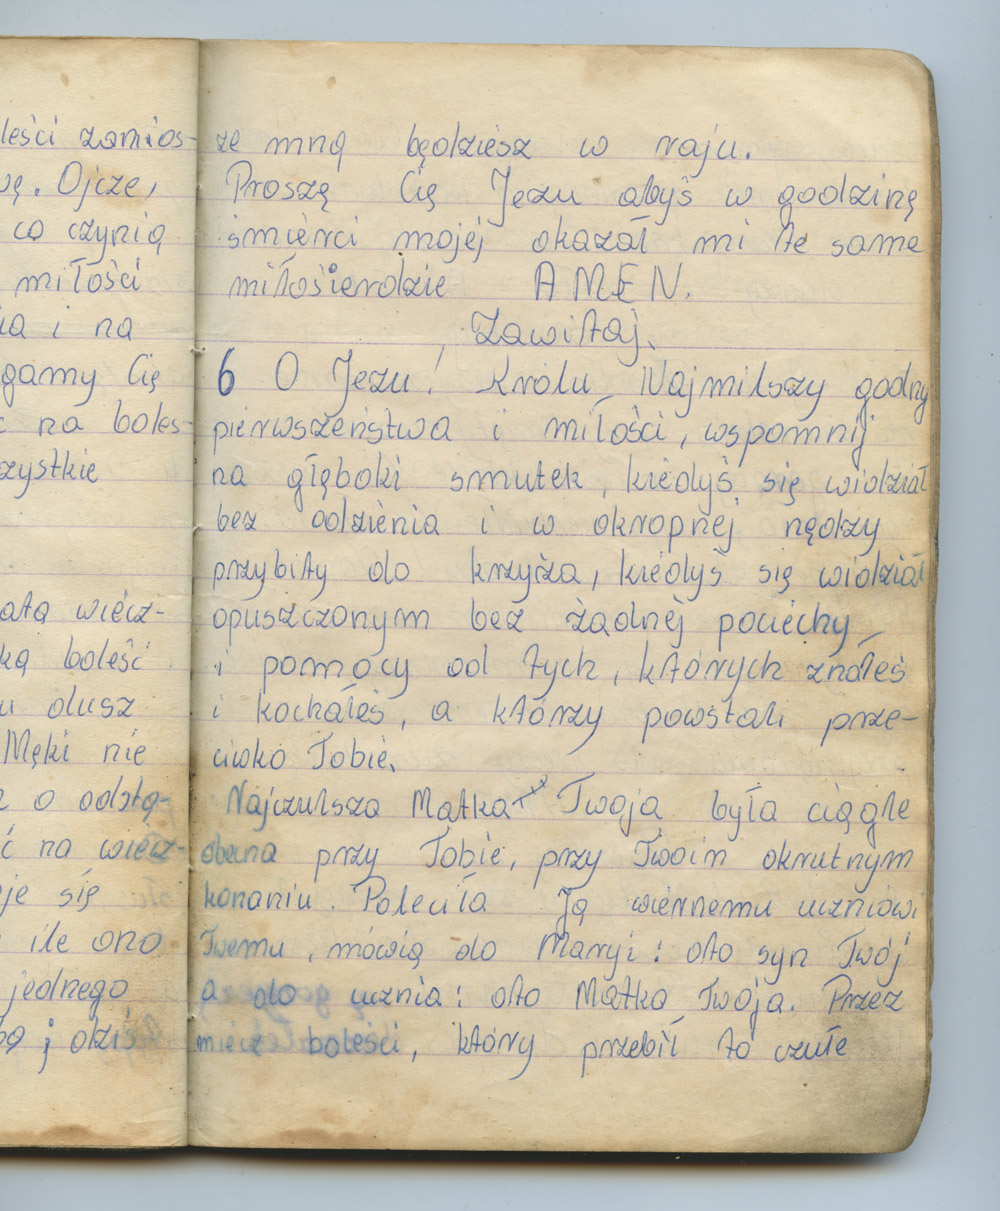 leści zamios-
wę. Ojcze,
co czynią
miłości
ia i na
gamy Cię
ć na boles-
zystkie
atą wiecz-
ką boleść
u dusz
Męki nie
z o odstą-
ć na wiecz-
je się
ile ono
jednego
bą j dziś
ze mną będziesz w raju.
Proszę Cię Jezu abyś w godzinę
śmierci mojej okazał mi te same
miłośierdzie AMEN.
Zawitaj.
6 O Jezu! Królu Najmilszy godny
pierwszeństwa i miłości, wspomnij
na głęboki smutek, kiedyś się widział
bez odzienia i w okropnej nędzy
przybity do krzyża, kiedyś się widział
opuszczonym bez żadnej pociechy
i pomocy od tych, których znałeś
i kochałeś, a którzy powstali prze-
ciwko Tobie.
Najczulsza Matka Twoja była ciągle
obecna przy Tobie, przy Twoim okrutnym
konaniu. Poleciła Ją wiernemu uczniowi
Twemu, mówią do Maryi: oto syn Twój
a do ucznia: oto Matka Twoja. Przez
miecz boleści, który przebił to czułe